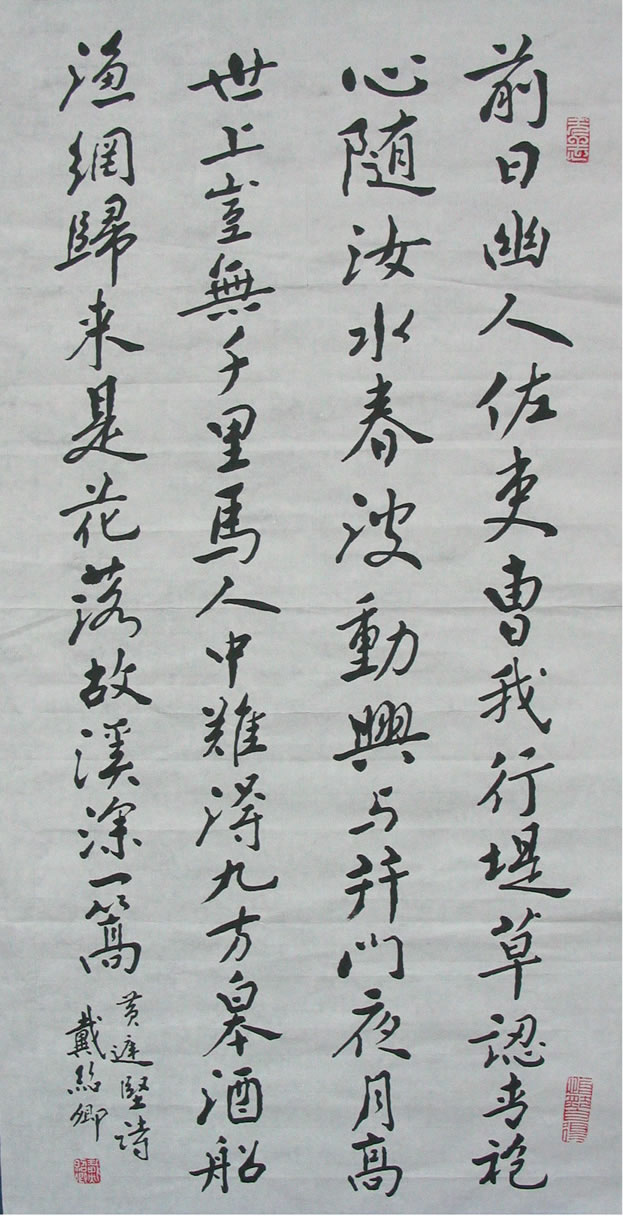 前日幽人佐吏曹我行堤草認青袍
心随汝水春波動興与并門夜月高
世上豈無千里馬人中難得九方皋酒船
漁網歸来是花落故溪深一篙
黄庭堅詩
戴紹卿